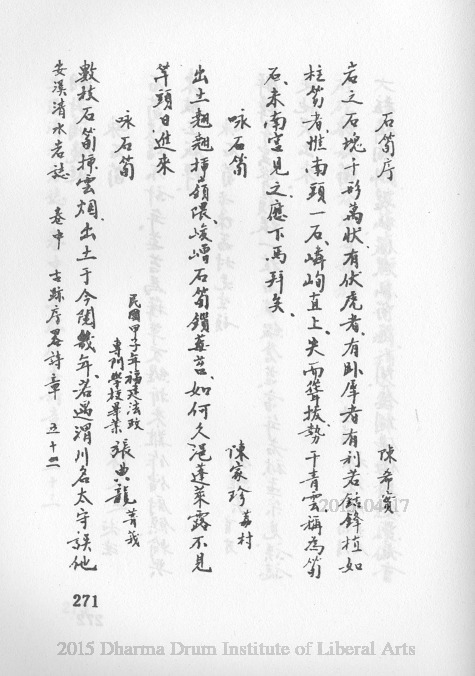 石筍序 陳希實
岩之石塊千形萬狀、有伏虎者、有卧犀者、有利若鋒、植如
柱笏者、惟南頭一石、嶙峋直上、尖而聳拔、勢干青雲、稱為筍
石、未南宮見之、應下馬拜矣、
咏石筍 陳家珍 嘉村
出土翹翹插嶺隈、崚嶒石筍鎖蒼苔、如何久浥蓬萊露、不見
竿頭日進來
咏石筍 民國甲子年福建法政專門學校畢業 張典龍 菁莪
數枝石筍掃雲烟、出土于今閱幾年、若遇渭川名太守、誤他
安溪清水岩誌 卷中 古跡序畧詩章 五十四
271
2015-04-17
2015 Dharma Drum Institute of Liberal Arts